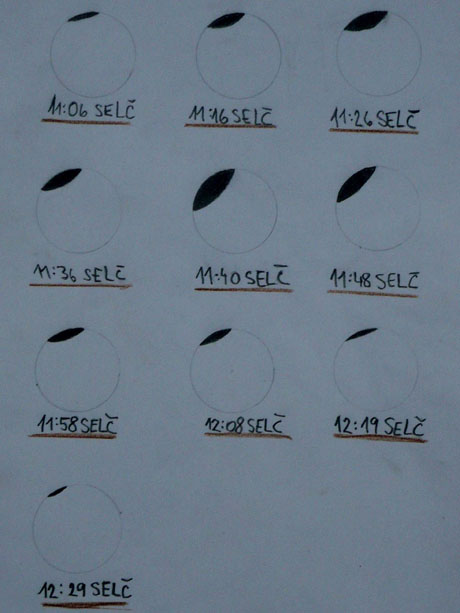 11:06 SELČ
11:16 SELČ
11:26 SELČ
11:36 SELČ
11:40 SELČ
11:48 SELČ
11:58 SELČ
12:08 SELČ
12:19 SELČ
12:29 SELČ